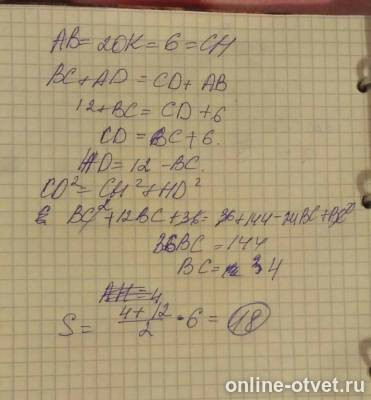 AB = 2OK = 6 = CH
BC + AD = CD + AB
12 + BC = CD + 6
CD = BC + 6.
HD = 12 - BC.
CD² = CH² + HD²
BC² + 12BC + 36 = 36 + 144 - 24BC + BC²
36BC = 144
BC = 4
AH = 4
S = (4 + 12)/2 · 6 = 18
online-otvet.ru